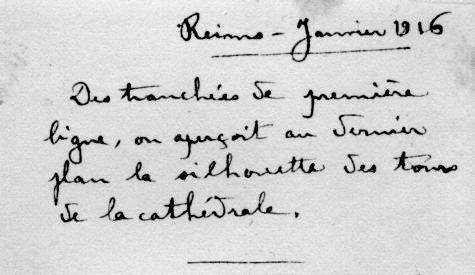 Reims - Janvier 1916
Des tranchées de première
ligne, on aperçoit au dernier
plan la silhouette des tours
de la cathédrale.